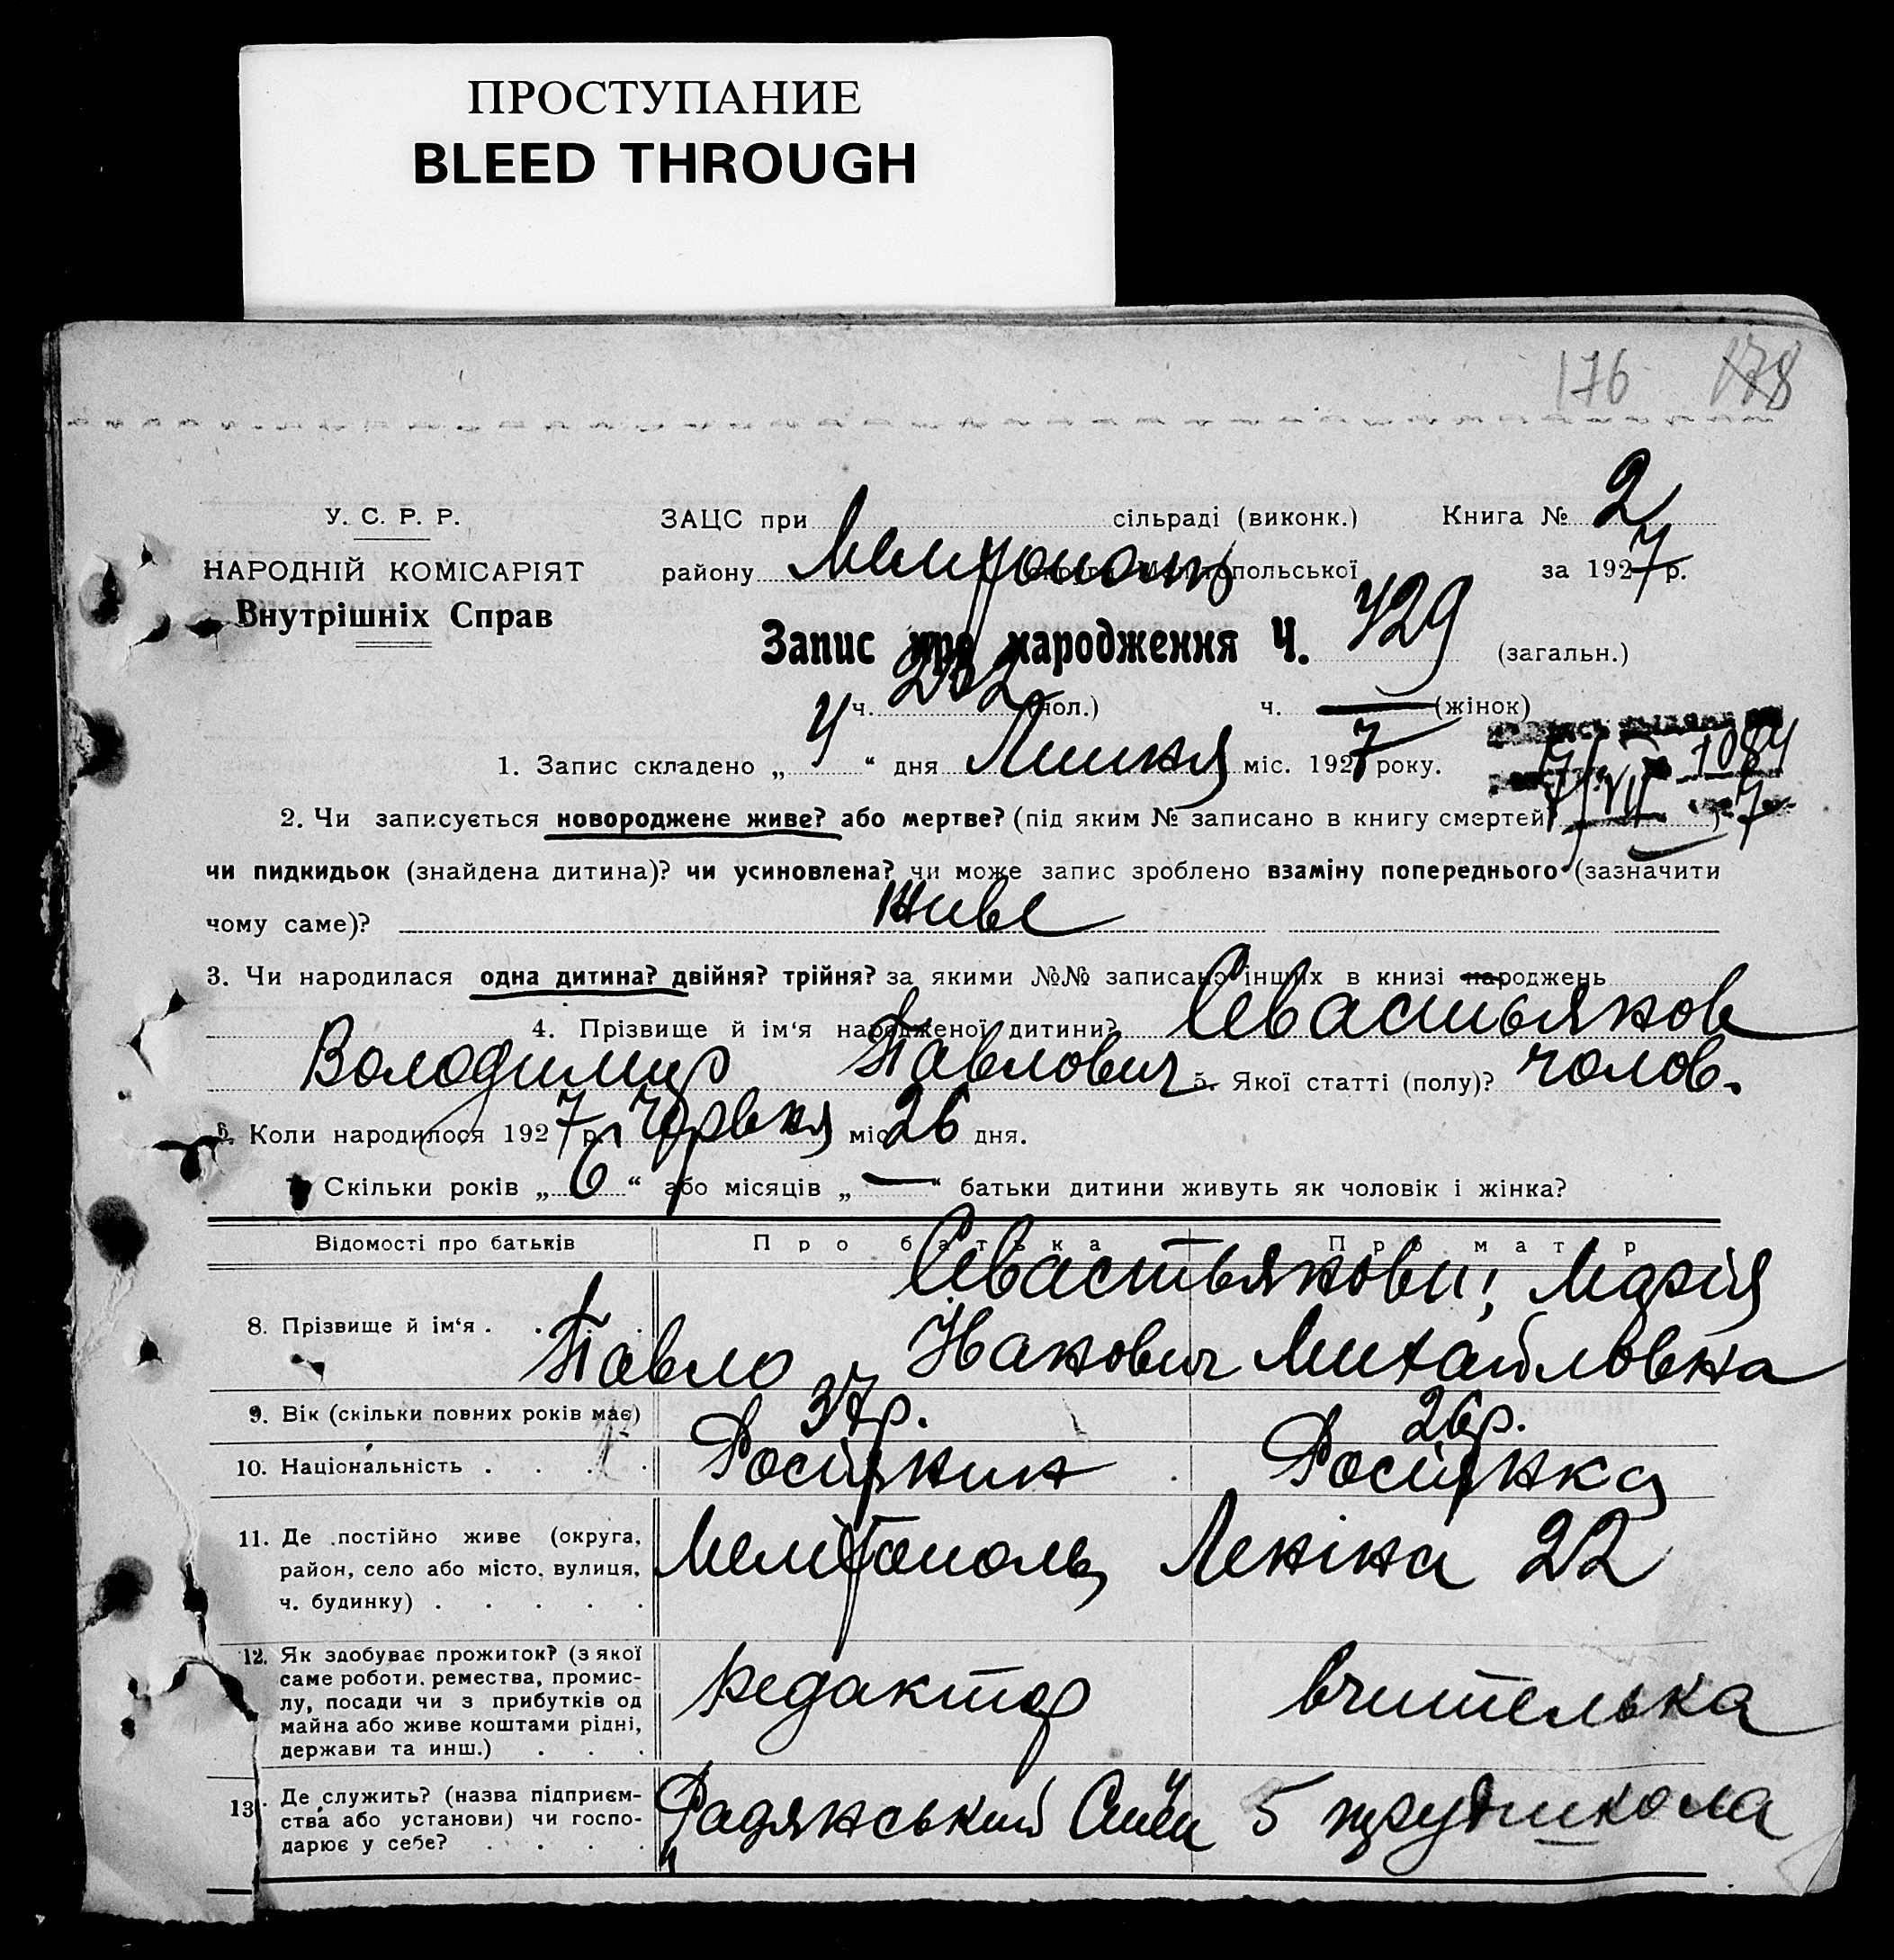 ПРОСТУПАНИЕ
BLEED THROUGH
176 178
У. С. Р. Р.
НАРОДНІЙ КОМІСАРІЯТ
Внутрішніх Справ
ЗАЦС при сільраді (виконк.) Книга № 2
району Мелітополь округи Мелітопольської за 1927 р.
Запис про народження Ч. 429 (загальн.)
ч. 232 (чол.) ч. — (жінок)
1. Запис складено „ 4 “ дня Липня міс. 1927 року.
1084
2. Чи записується новороджене живе? або мертве? (під яким № записано в книгу смертей )
чи пидкидьок (знайдена дитина)? чи усиновлена? чи може запис зроблено взаміну попереднього (зазначити
чому саме)? живе
3. Чи народилася одна дитина? двійня? трійня? за якими №№ записано інших в книзі народжень
4. Прізвище й ім‘я народженої дитини? Севастьянов
Володимир Павлович 5. Якої статті (полу)? чолов.
6. Коли народилося 1927 р. Червня міс. 26 дня.
Скільки років „ 6 “ або місяців „ — “ батьки дитини живуть як чоловік і жінка?
Відомості про батьків Про батька Про матір
Севастьянови: Марія
8. Прізвище й ім‘я . . . . Павло Іванович Михайлівна
9. Вік (скільки повних років має) 37 р. 26 р.
10. Національність . . . . Росіянин Росіянка
11. Де постійно живе (округа,
район, село або місто, вулиця,
ч. будинку) . . . . . Мелітополь Леніна 22
12. Як здобуває прожиток? (з якої
саме роботи, ремества, промис-
лу, посади чи з прибутків од
майна або живе коштами рідні,
держави та инш.) . . . редактор вчителька
13. Де служить? (назва підприєм-
ства або установи) чи госпо-
дарює у себе? . . . . „Радянський Степ“ 5 трудшкола